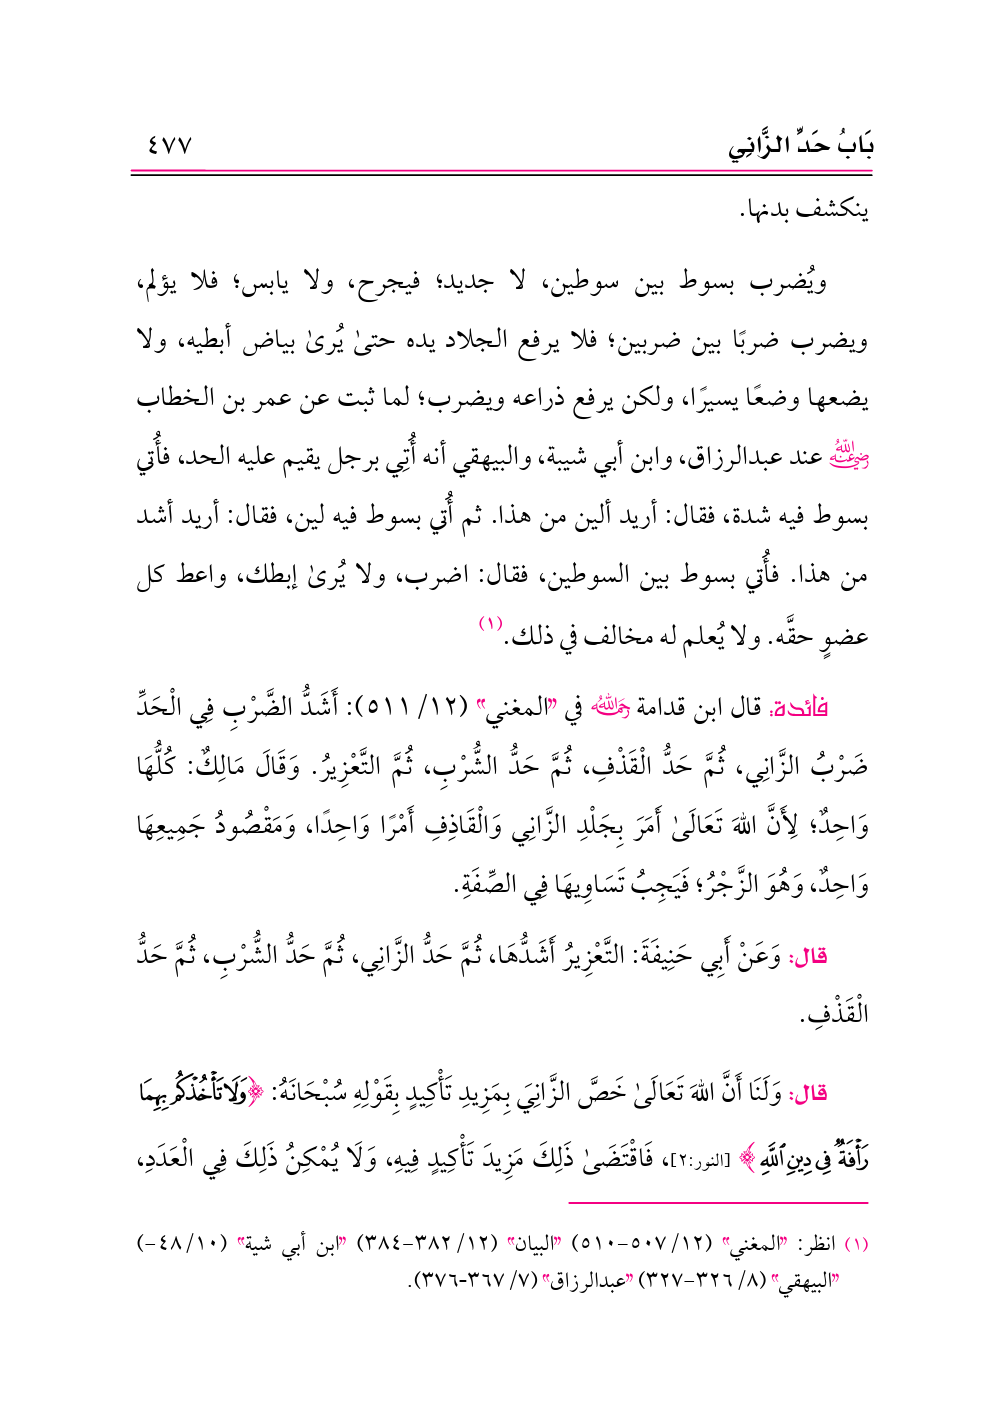 بَابُ حَدِّ الزَّانِي ٤٧٧
ينكشف بدنها.
ويُضرب بسوط بين سوطين، لا جديد؛ فيجرح، ولا يابس؛ فلا يؤلم،
ويضرب ضربًا بين ضربين؛ فلا يرفع الجلاد يده حتىٰ يُرىٰ بياض أبطيه، ولا
يضعها وضعًا يسيرًا، ولكن يرفع ذراعه ويضرب؛ لما ثبت عن عمر بن الخطاب
رضي الله عنه عند عبدالرزاق، وابن أبي شيبة، والبيهقي أنه أُتِي برجل يقيم عليه الحد، فأُتي
بسوط فيه شدة، فقال: أريد ألين من هذا. ثم أُتي بسوط فيه لين، فقال: أريد أشد
من هذا. فأُتي بسوط بين السوطين، فقال: اضرب، ولا يُرىٰ إبطك، واعط كل
عضوٍ حقَّه. ولا يُعلم له مخالف في ذلك.(١)
فائدة: قال ابن قدامة رحمه الله في "المغني" (١٢/ ٥١١): أَشَدُّ الضَّرْبِ فِي الْحَدِّ
ضَرْبُ الزَّانِي، ثُمَّ حَدُّ الْقَذْفِ، ثُمَّ حَدُّ الشُّرْبِ، ثُمَّ التَّعْزِيرُ. وَقَالَ مَالِكٌ: كُلُّهَا
وَاحِدٌ؛ لِأَنَّ اللهَ تَعَالَىٰ أَمَرَ بِجَلْدِ الزَّانِي وَالْقَاذِفِ أَمْرًا وَاحِدًا، وَمَقْصُودُ جَمِيعِهَا
وَاحِدٌ، وَهُوَ الزَّجْرُ؛ فَيَجِبُ تَسَاوِيهَا فِي الصِّفَةِ.
قال: وَعَنْ أَبِي حَنِيفَةَ: التَّعْزِيرُ أَشَدُّهَا، ثُمَّ حَدُّ الزَّانِي، ثُمَّ حَدُّ الشُّرْبِ، ثُمَّ حَدُّ
الْقَذْفِ.
قال: وَلَنَا أَنَّ اللهَ تَعَالَىٰ خَصَّ الزَّانِيَ بِمَزِيدِ تَأْكِيدٍ بِقَوْلِهِ سُبْحَانَهُ: ﴿وَلَا تَأْخُذْكُم بِهِمَا
رَأْفَةٌ فِي دِينِ ٱللَّهِ﴾ [النور:٢]، فَاقْتَضَىٰ ذَلِكَ مَزِيدَ تَأْكِيدٍ فِيهِ، وَلَا يُمْكِنُ ذَلِكَ فِي الْعَدَدِ،
(١) انظر: "المغني" (١٢/ ٥٠٧-٥١٠) "البيان" (١٢/ ٣٨٢-٣٨٤) "ابن أبي شية" (١٠/ ٤٨-)
"البيهقي" (٨/ ٣٢٦-٣٢٧) "عبدالرزاق" (٧/ ٣٦٧-٣٧٦).